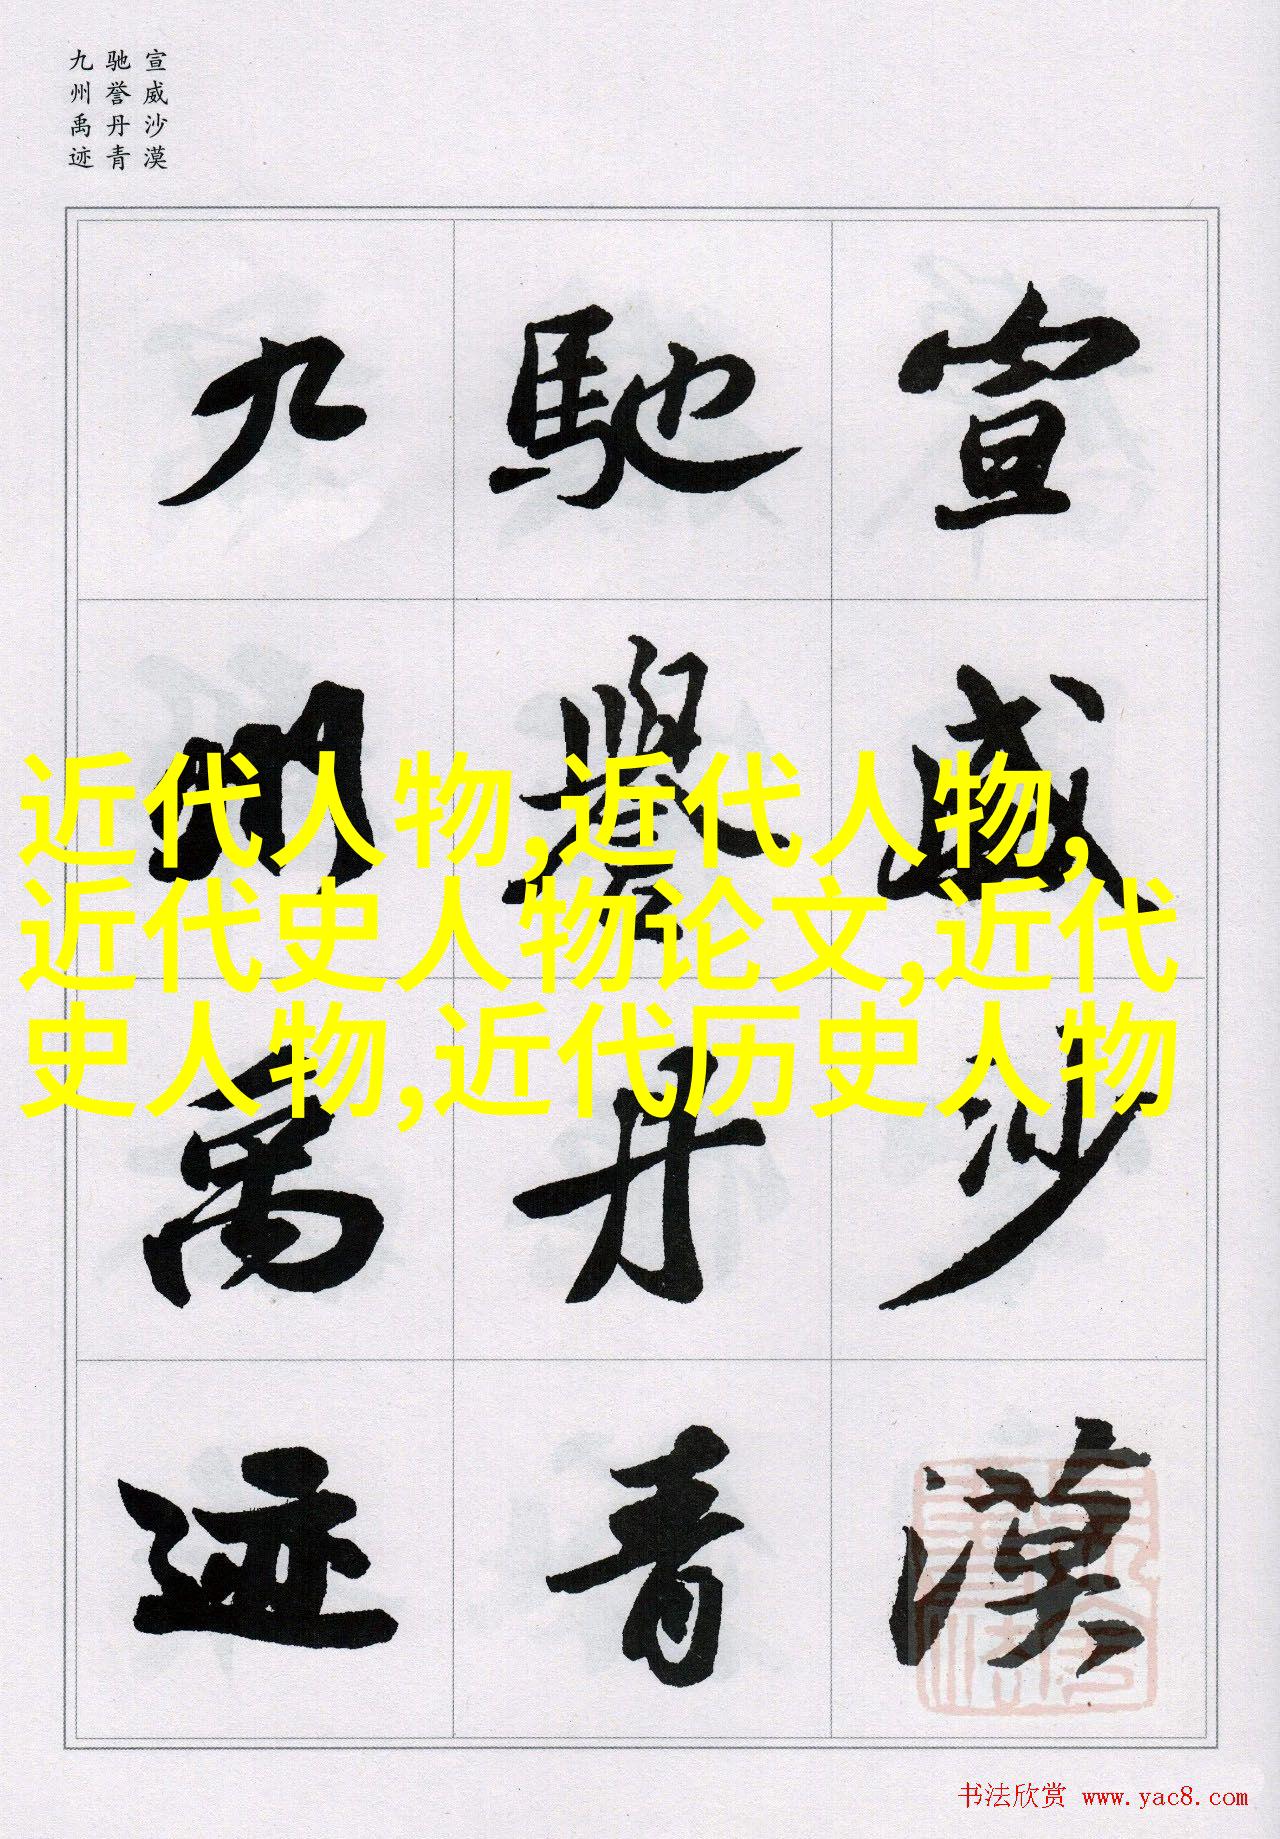 宣威沙漠
驰誉丹青
九州禹迹
宣威沙漠
馳譽丹青
九州禹迹
近代人物,近代人物,
近代史人物论文,近代
史人物,近代历史人物
书法欣赏 www.yac8.com